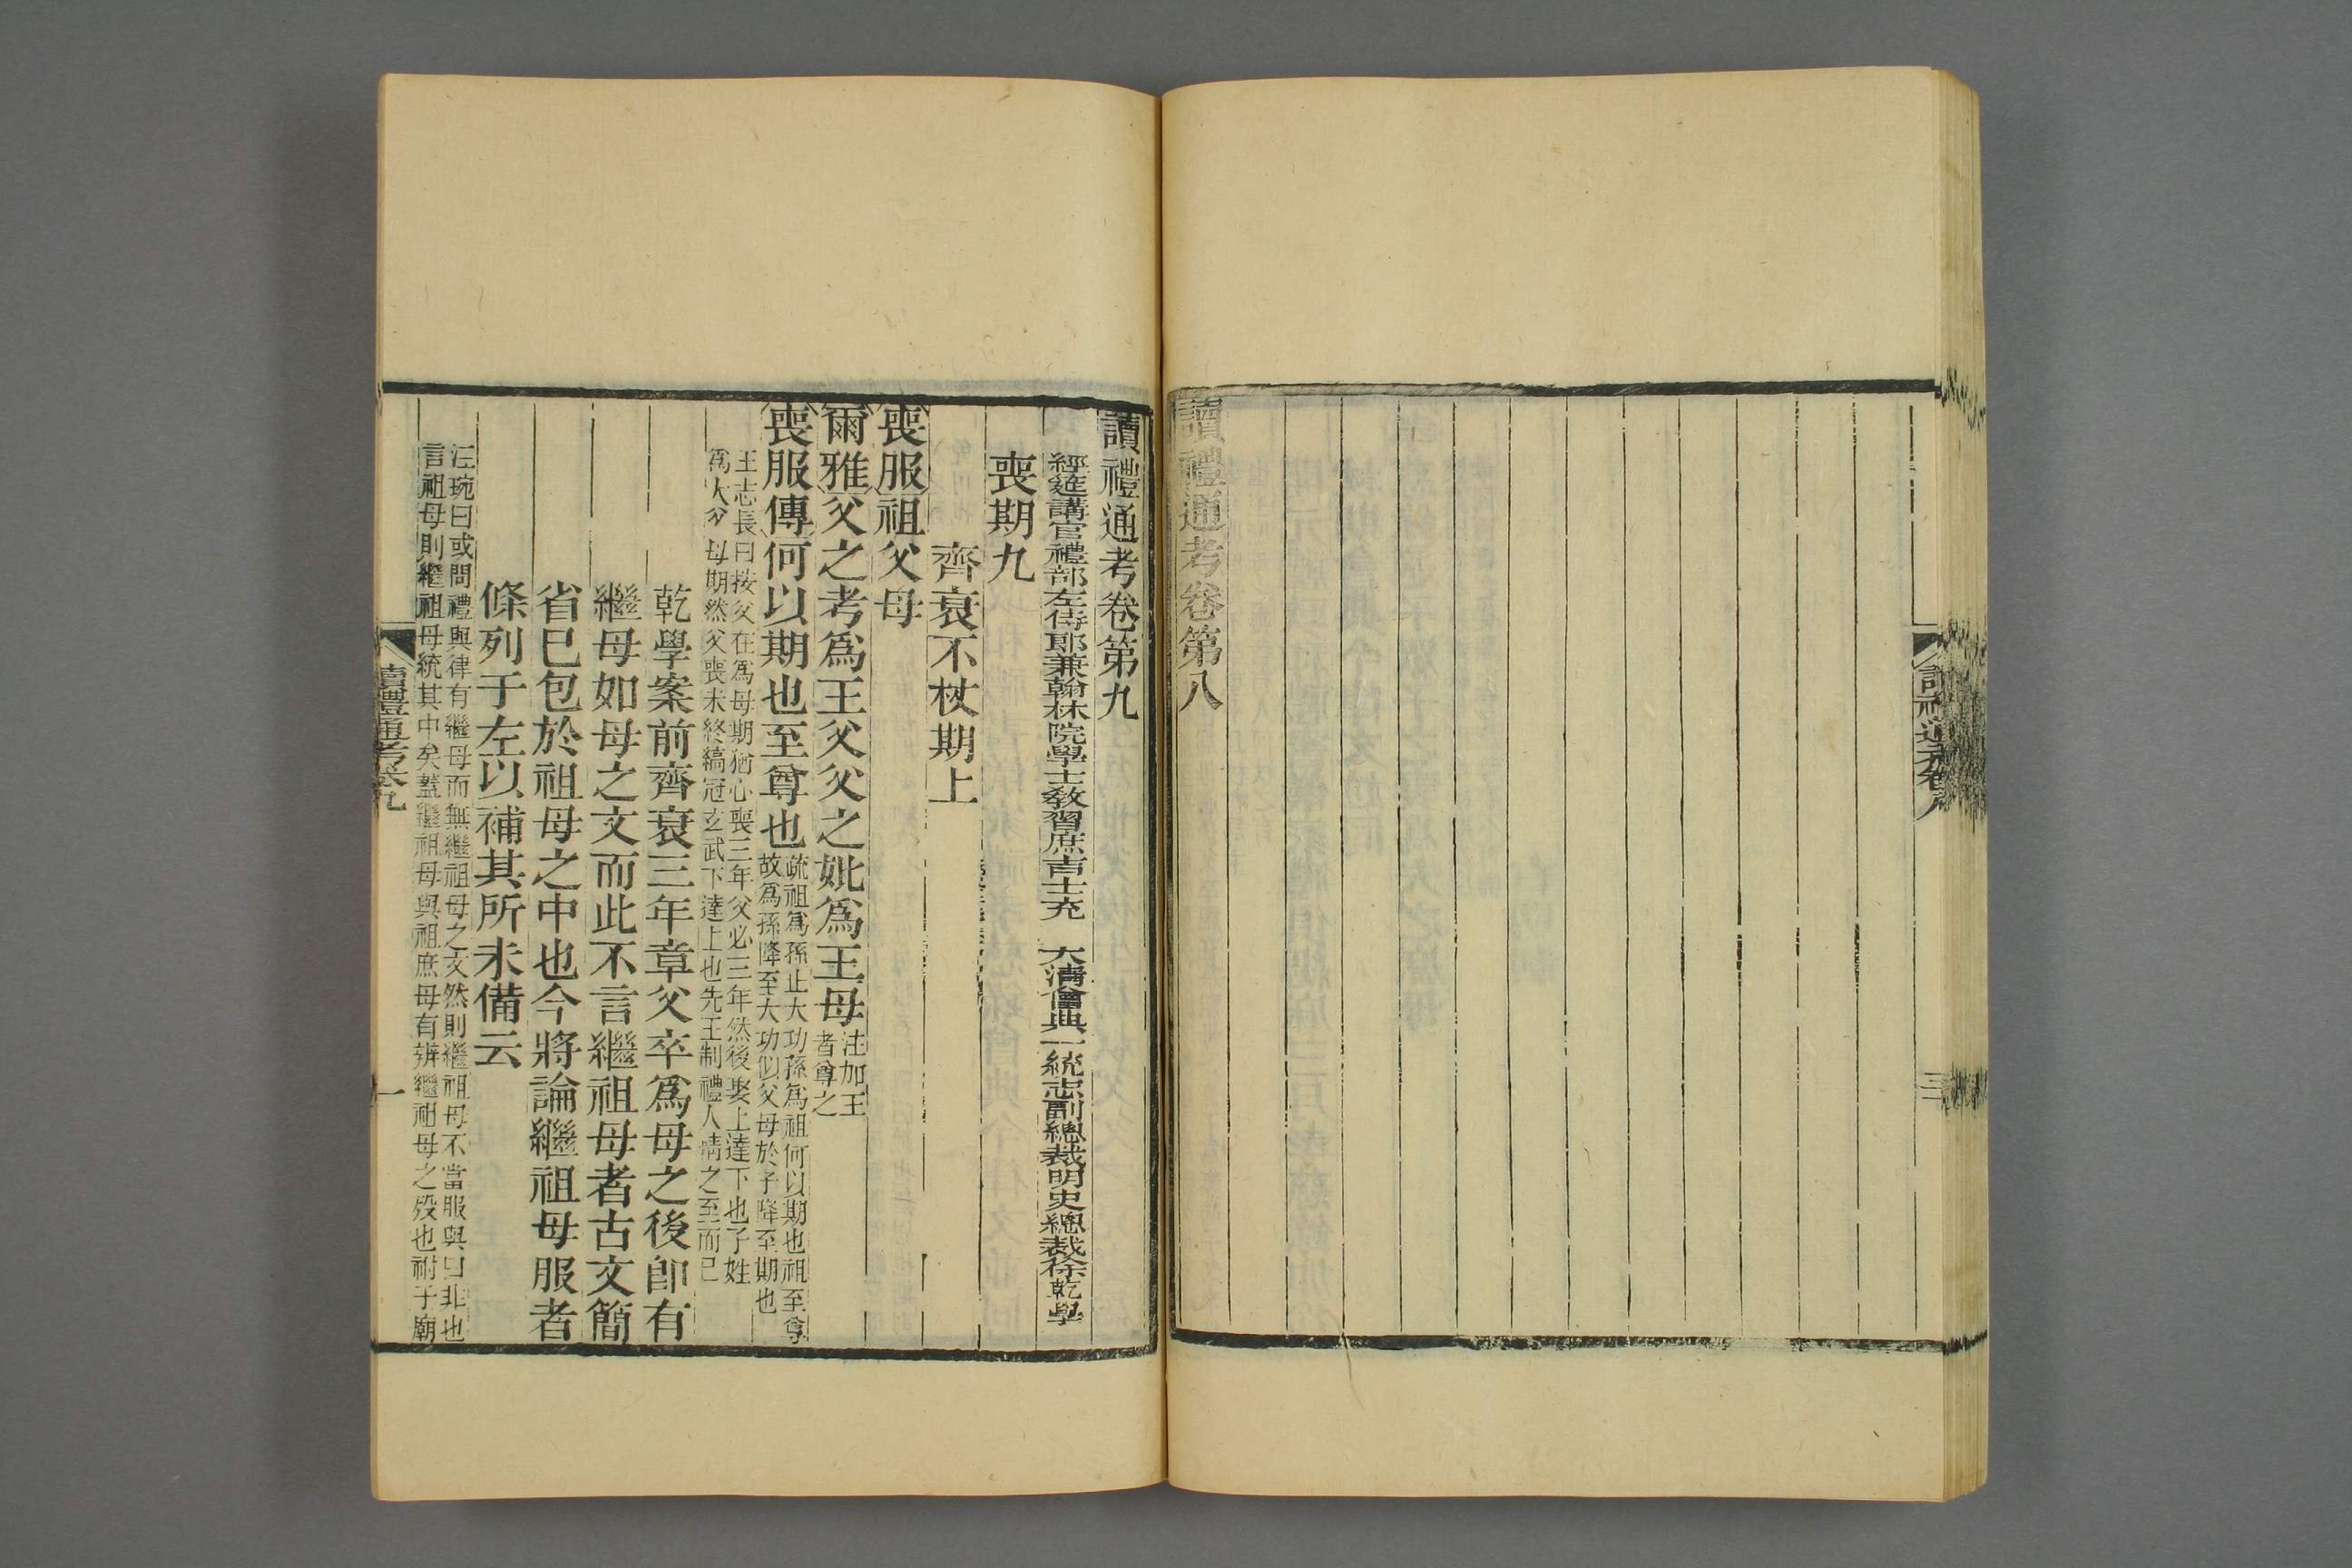 讀禮通考卷八
三
讀禮通考卷第八
讀禮通考卷第九
經筵講官禮部左侍郎兼翰林院學士教習庶吉士充　大淸會典一統志副總裁明史總裁徐乾學
喪期九
齊衰不杖期上
喪服祖父母
爾雅父之考爲王父父之妣爲王母注加王
者尊之
喪服傳何以期也至尊也疏祖爲孫止大功孫爲祖何以期也祖至尊
故爲孫降至大功似父母於子降至期也
王志長曰按父在爲母期猶心喪三年父必三年然後娶上達下也子姓
爲大父母期然父喪未終縞冠玄武下達上也先王制禮人情之至而已
乾學案前齊衰三年章父卒爲母之後卽有
繼母如母之文而此不言繼祖母者古文簡
省已包於祖母之中也今將論繼祖母服者
條列于左以補其所未備云
汪琬曰或問禮與律有繼母而無繼祖母之文然則繼祖母不當服與曰非也
言祖母則繼祖母統其中矣蓋繼祖母與祖庶母有辨繼祖母之歿也祔于廟
讀禮通考卷九
一